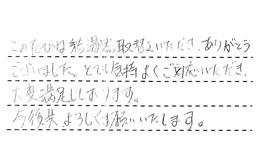 このたびは給湯器取替えいただき、ありがとう
ございました。とても気持よくご対応いただき、
大変満足しております。
今後共、よろしくお願いいたします。